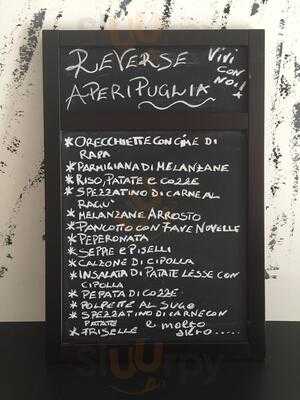 REVERSE
VIVI
CON
NOI!
APERIPUGLIA
* ORECCHIETTE CON CIME DI
RAPA
* PARMIGIANA DI MELANZANE
* RISO, PATATE e COZZE
* SPEZZATINO DI CARNE AL
RAGU'
* MELANZANE ARROSTO
* PANCOTTO CON FAVE NOVELLE
* PEPERONATA
* SEPPE e PISELLI
* CALZONE DI CIPOLLA
* INSALATA DI PATATE LESSE CON
CIPOLLA
* PEPATA DI COZZE
* POLPETTE AL SUGO
* SPEZZATINO DI CARNE CON
PATATE e molto
* FRISELLE altro.....